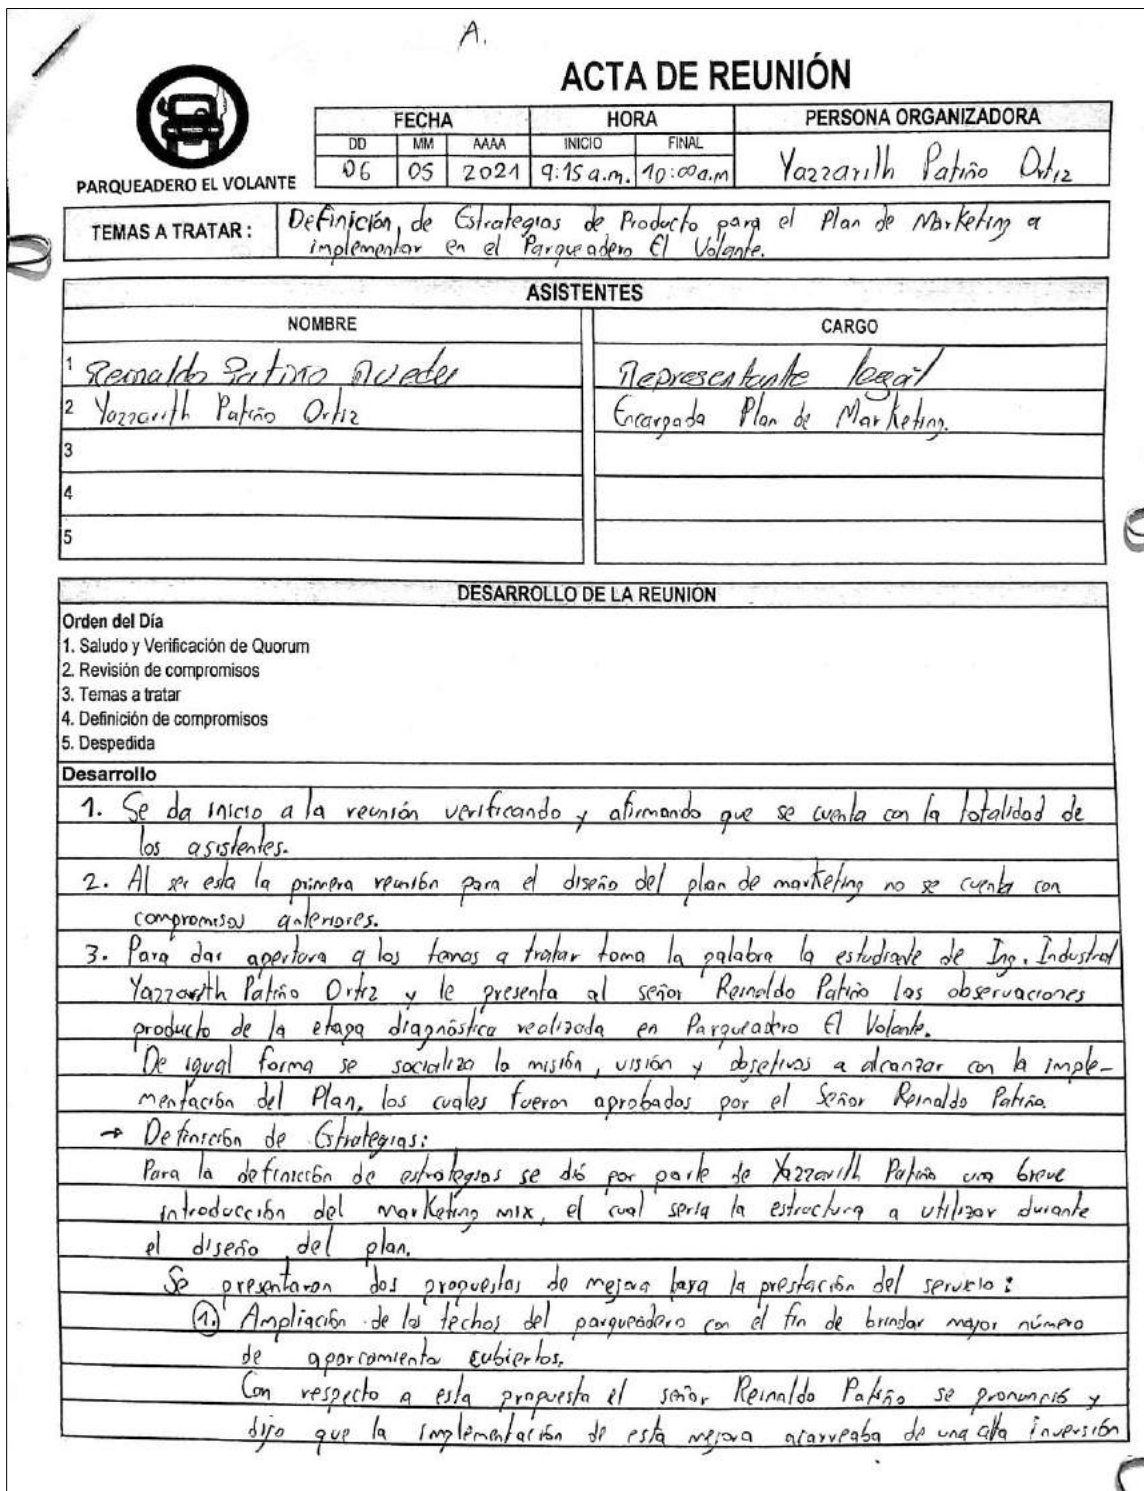 A.
ACTA DE REUNIÓN
PARQUEADERO EL VOLANTE
FECHA HORA PERSONA ORGANIZADORA
DD MM AAAA INICIO FINAL
06 05 2021 9:15 a.m. 10:00 a.m Yazzarith Patiño Ortiz
TEMAS A TRATAR: Definición de Estrategias de Producto para el Plan de Marketing a
implementar en el Parqueadero El Volante.
ASISTENTES
NOMBRE CARGO
1 Reinaldo Patiño Representante legal
2 Yazzarith Patiño Ortiz Encargada Plan de Marketing.
3
4
5
DESARROLLO DE LA REUNIÓN
Orden del Día
1. Saludo y Verificación de Quorum
2. Revisión de compromisos
3. Temas a tratar
4. Definición de compromisos
5. Despedida
Desarrollo
1. Se da inicio a la reunión verificando y afirmando que se cuenta con la totalidad de
los asistentes.
2. Al ser esta la primera reunión para el diseño del plan de marketing no se cuenta con
compromisos anteriores.
3. Para dar apertura a los temas a tratar toma la palabra la estudiante de Ing. Industrial
Yazzarith Patiño Ortiz y le presenta al señor Reinaldo Patiño las observaciones
producto de la etapa diagnóstica realizada en Parqueadero El Volante.
De igual forma se socializa la misión, visión y objetivos a alcanzar con la imple-
mentación del Plan, los cuales fueron aprobados por el Señor Reinaldo Patiño.
→ Definición de Estrategias:
Para la definición de estrategias se dió por parte de Yazzarith Patiño una breve
introducción del marketing mix, el cual sería la estructura a utilizar durante
el diseño del plan.
Se presentaron dos propuestas de mejora para la prestación del servicio:
1. Ampliación de los techos del parqueadero con el fin de brindar mayor número
de aparcamiento cubiertos.
Con respecto a esta propuesta el señor Reinaldo Patiño se pronunció y
dijo que la implementación de esta mejora acarreaba de una alta inversión